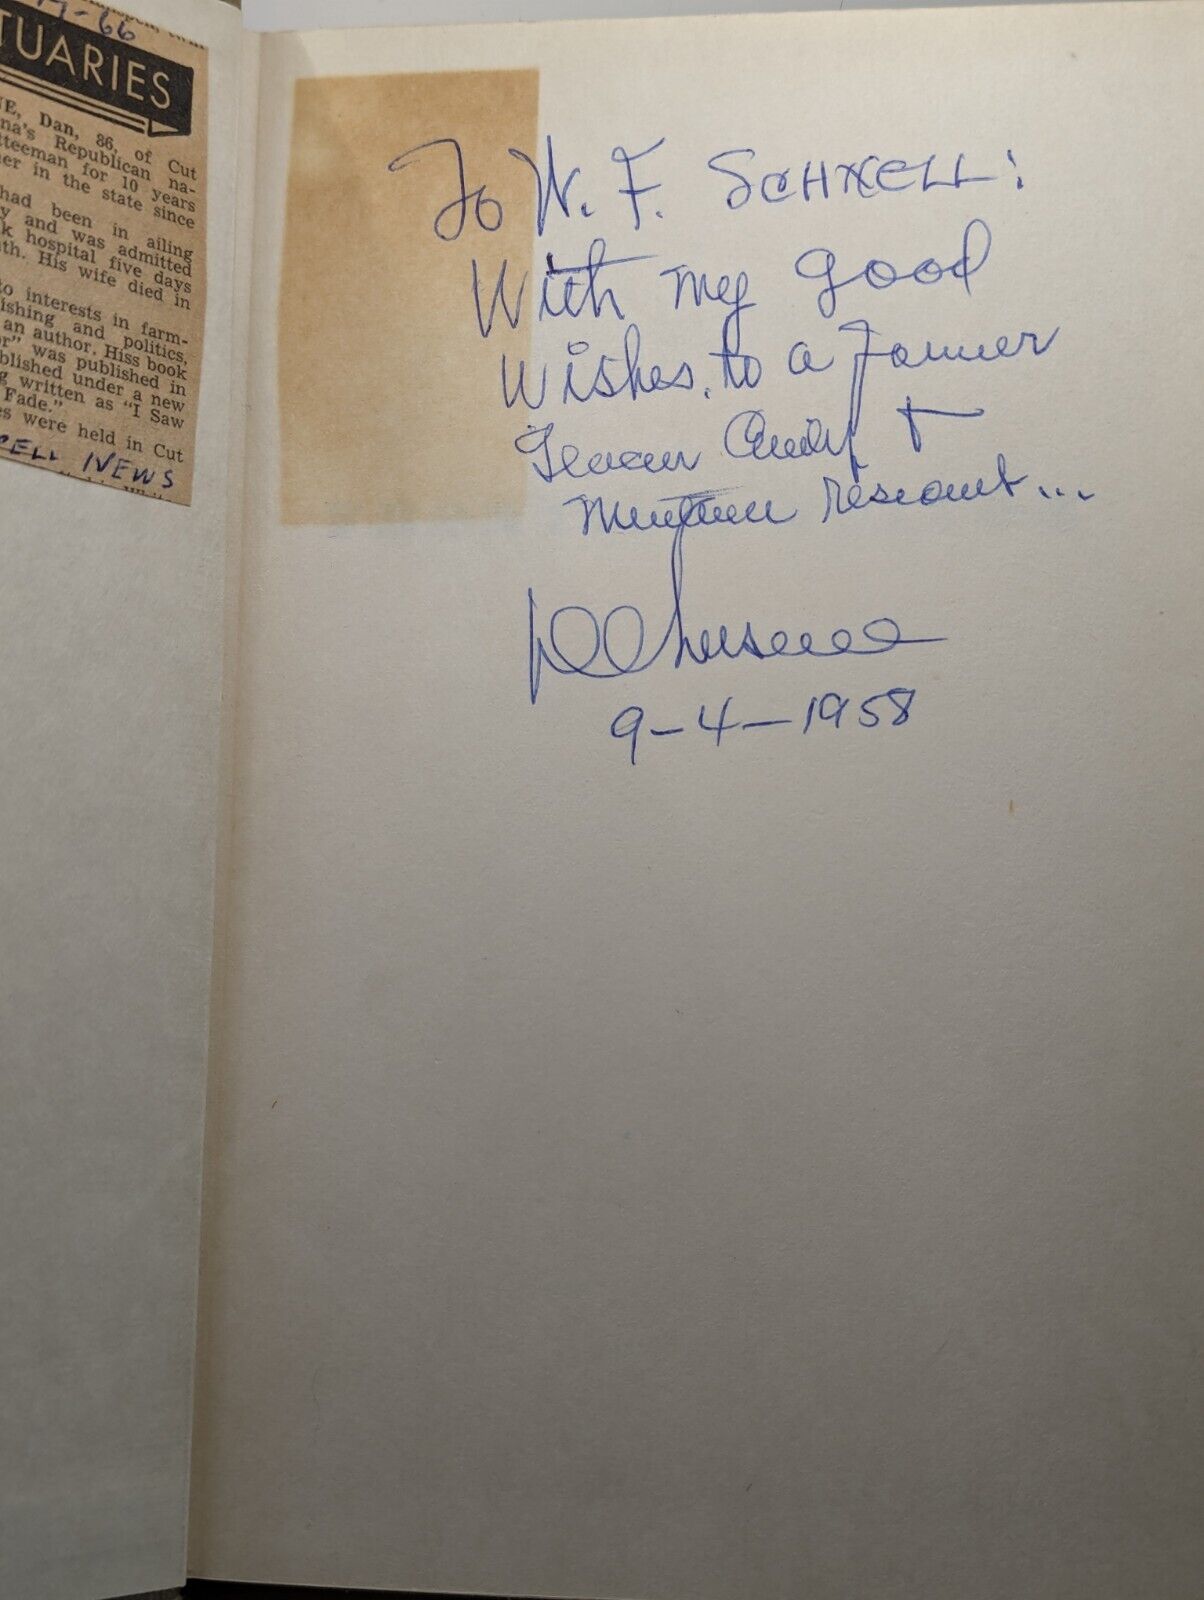 17-66
TUARIES
NE, Dan, 86, of Cut
na's Republican na-
tteeman for 10 years
er in the state since
had been in ailing
y and was admitted
k hospital five days
th. His wife died in
to interests in farm-
ishing and politics,
an author. Hiss book
r" was published in
blished under a new
g written as "I Saw
Fade."
es were held in Cut
CELL NEWS
To W. F. SCHNELL:
With my good
Wishes, to a Former
resident...
9-4-1958